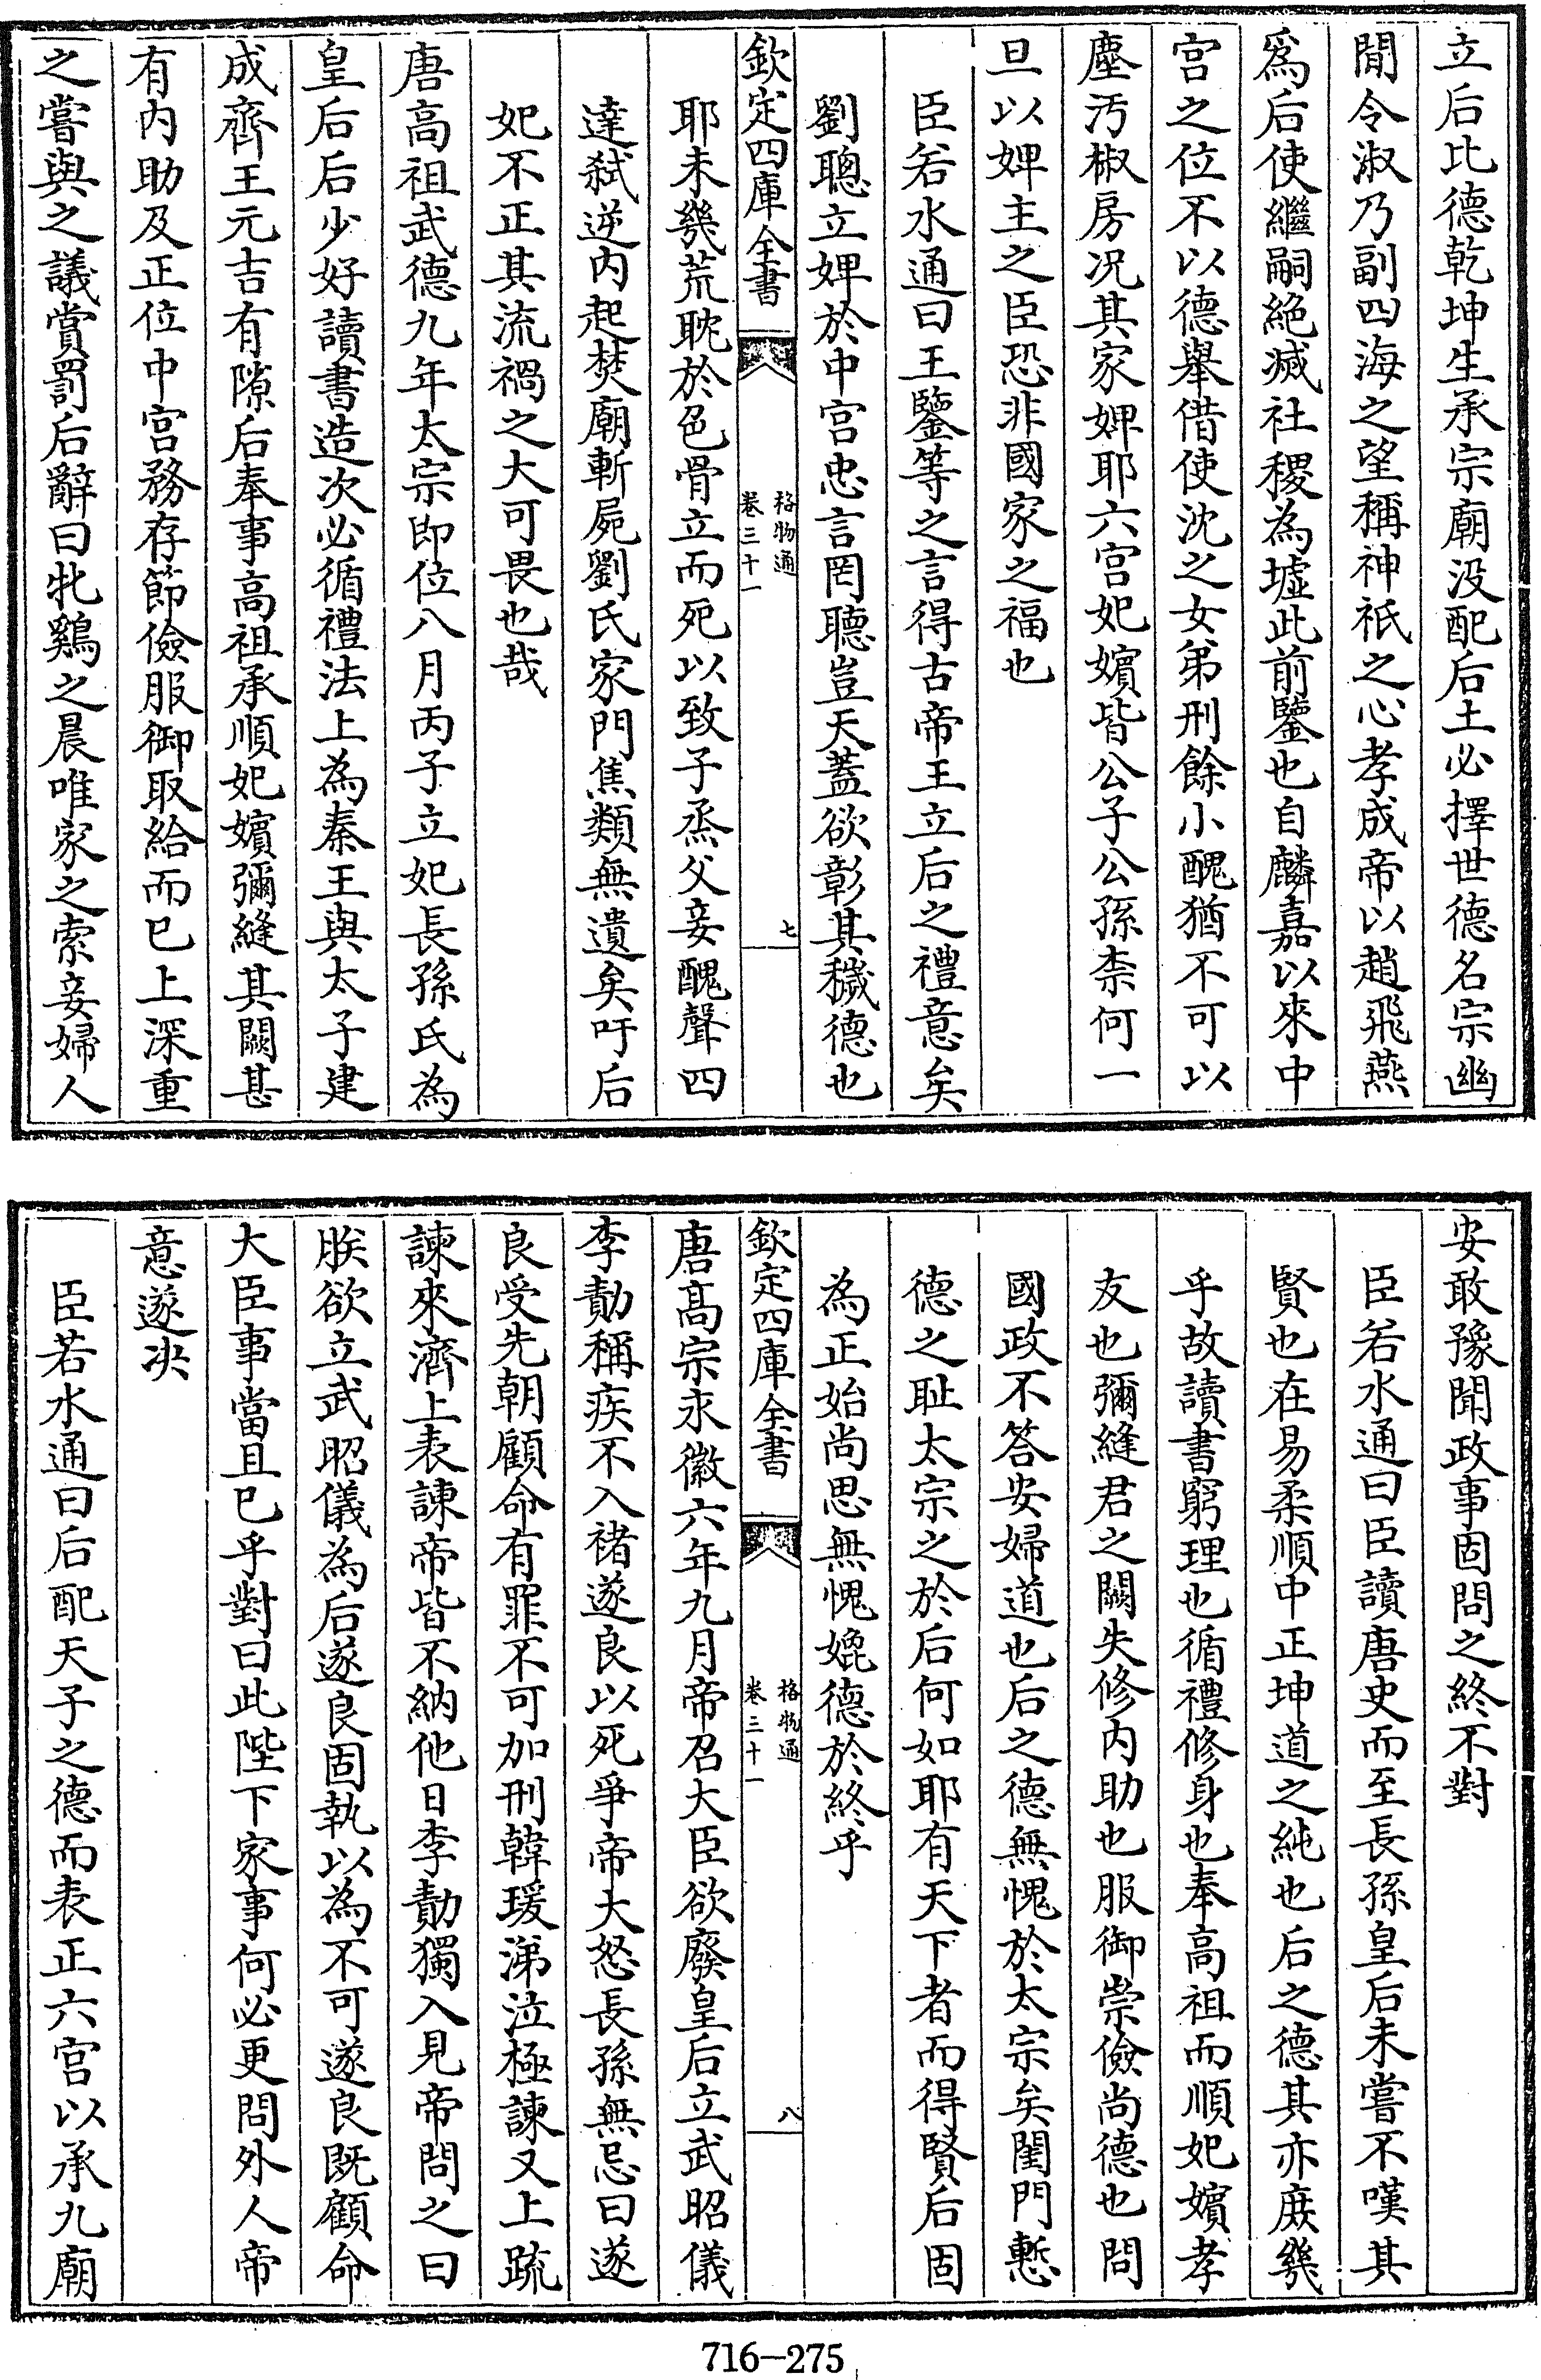 立后比德乾坤生承宗廟没配后土必擇世德名宗幽
閒令淑乃副四海之望稱神祇之心孝成帝以趙飛燕
爲后使繼嗣絶滅社稷為墟此前鑒也自麟嘉以來中
宫之位不以德舉借使沈之女弟刑餘小醜猶不可以
塵汚椒房况其家婢耶六宫妃嬪皆公子公孫柰何一
旦以婢主之臣恐非國家之福也
臣若水通曰王鑒等之言得古帝王立后之禮意矣
劉聰立婢於中宫忠言罔聽豈天蓋欲彰其穢德也
欽定四庫全書
格物通
卷三十一
七
耶未幾荒耽於色骨立而死以致子烝父妾醜聲四
達弑逆内起焚廟斬屍劉氏家門焦類無遺矣吁后
妃不正其流禍之大可畏也哉
唐高祖武德九年太宗即位八月丙子立妃長孫氏為
皇后后少好讀書造次必循禮法上為秦王與太子建
成齊王元吉有隙后奉事高祖承順妃嬪彌縫其闕甚
有内助及正位中宫務存節儉服御取給而已上深重
之嘗與之議賞罰后辭曰牝鷄之晨唯家之索妾婦人
安敢豫聞政事固問之終不對
臣若水通曰臣讀唐史而至長孫皇后未嘗不嘆其
賢也在易柔順中正坤道之純也后之德其亦庶幾
乎故讀書窮理也循禮修身也奉高祖而順妃嬪孝
友也彌縫君之闕失修内助也服御崇儉尚德也問
國政不答安婦道也后之德無愧於太宗矣閨門慙
德之耻太宗之於后何如耶有天下者而得賢后固
為正始尚思無愧媲德於終乎
欽定四庫全書
格物通
卷三十一
八
唐髙宗永徽六年九月帝召大臣欲廢皇后立武昭儀
李勣稱疾不入禇遂良以死爭帝大怒長孫無忌曰遂
良受先朝顧命有罪不可加刑韓瑗涕泣極諫又上疏
諫來濟上表諫帝皆不納他日李勣獨入見帝問之曰
朕欲立武昭儀為后遂良固執以為不可遂良既顧命
大臣事當且已乎對曰此陛下家事何必更問外人帝
意遂决
臣若水通曰后配天子之德而表正六宫以承九廟
716-275